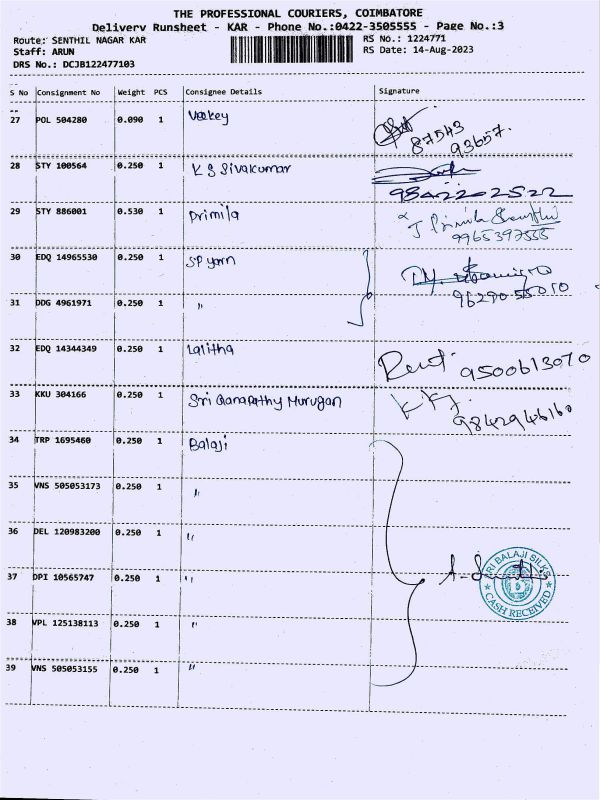 THE PROFESSIONAL COURIERS, COIMBATORE
Delivery Runsheet - KAR - Phone No.:0422-3505555 - Page No.:3
Route: SENTHIL NAGAR KAR
RS No.: 1224771
Staff: ARUN
RS Date: 14-Aug-2023
DRS No.: DCJB122477103
S No Consignment No Weight PCS Consignee Details Signature
27 POL 504280 0.090 1
87543
93657.
28 STY 100564 0.250 1 K S Sivakumar
9842202522
29 STY 886001 0.530 1 Primila
9965397555
30 EDQ 14965530 0.250 1 SP yarn
31 DDG 4961971 0.250 1 "
96290 55010
32 EDQ 14344349 0.250 1 Lalitha
9500613070
33 KKU 304166 0.250 1 Sri Ganapathy Murugan
9842946160
34 TRP 1695460 0.250 1 Balaji
35 VNS 505053173 0.250 1 "
36 DEL 120983200 0.250 1 "
37 DPI 10565747 0.250 1 "
SRI BALAJI SILKS
CASH RECEIVED
38 VPL 125138113 0.250 1 "
39 VNS 505053155 0.250 1 "